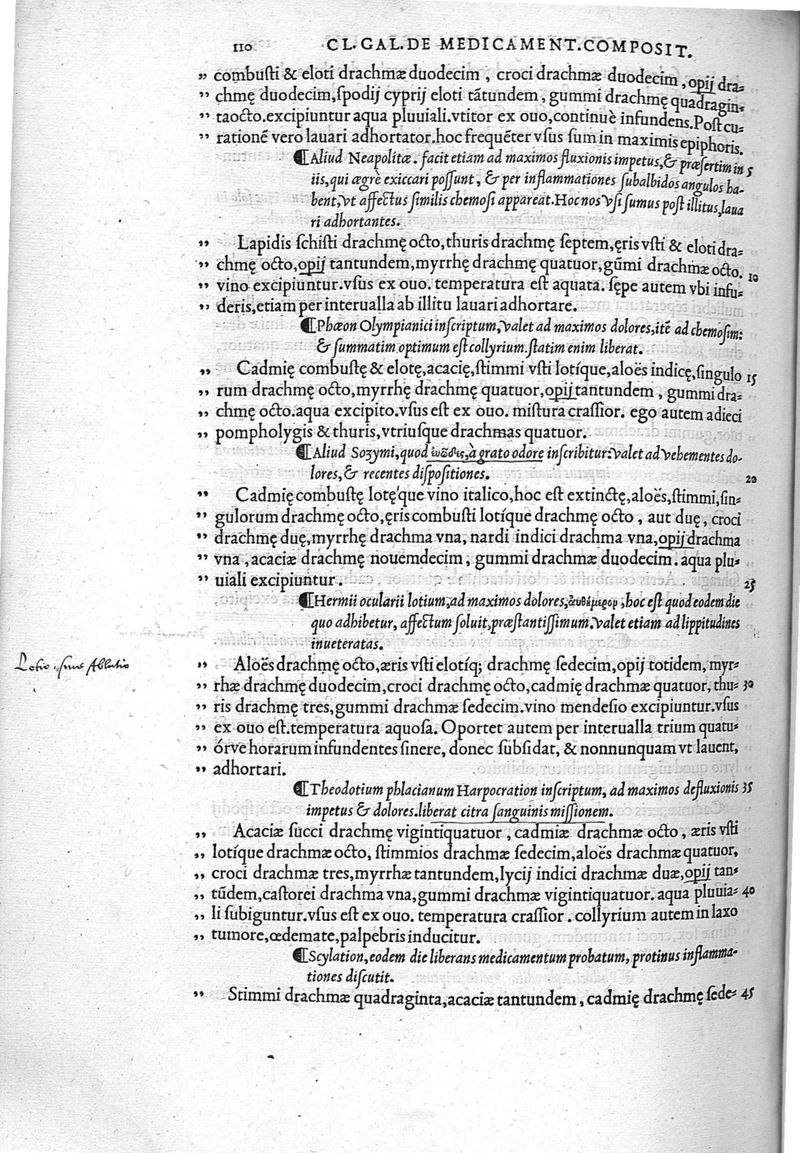 110 CL. GAL. DE MEDICAMENT. COMPOSIT.
„ combuſti & eloti drachmæ duodecim, croci drachmæ duodecim, opij dra=
„ chmę duodecim, ſpodij cyprij eloti tātundem, gummi drachmę quadragin=
„ taocto. excipiuntur aqua pluuiali. vtitor ex ouo, continuè infundens. Poſt cu=
„ rationē vero lauari adhortator. hoc frequēter vſus ſum in maximis epiphoris.
¶Aliud Neapolitæ. facit etiam ad maximos fluxionis impetus, & præſertim in 5
iis, qui ægrè exiccari poſſunt, & per inflammationes ſubalbidos angulos ha=
bent, vt affectus ſimilis chemoſi appareat. Hoc nos vſi ſumus poſt illitus, laua
ri adhortantes.
„ Lapidis ſchiſti drachmę octo, thuris drachmę ſeptem, ęris vſti & eloti dra=
„ chmę octo, opij tantundem, myrrhę drachmę quatuor, gūmi drachmæ octo. 10
„ vino excipiuntur. vſus ex ouo. temperatura eſt aquata. ſępe autem vbi infu=
„ deris, etiam per interualla ab illitu lauari adhortare.
¶Phæon Olympianici inſcriptum, valet ad maximos dolores, itē ad chemoſim:
& ſummatim optimum eſt collyrium. ſtatim enim liberat.
„ Cadmię combuſtę & elotę, acacię, ſtimmi vſti lotíque, aloës indicę, ſingulo 15
„ rum drachmę octo, myrrhę drachmę quatuor, opij tantundem, gummi dra=
„ chmę octo. aqua excipito. vſus eſt ex ouo. miſtura craſſior. ego autem adieci
„ pompholygis & thuris, vtriuſque drachmas quatuor.
¶Aliud Sozymi, quod à grato odore inſcribitur: valet ad vehementes do=
lores, & recentes diſpoſitiones. 20
„ Cadmię combuſtę lotę́que vino italico, hoc eſt extinctę, aloës, ſtimmi, ſin=
„ gulorum drachmę octo, ęris combuſti lotíque drachmę octo, aut duę, croci
„ drachmę duę, myrrhę drachma vna, nardi indici drachma vna, opij drachma
„ vna, acaciæ drachmę nouemdecim, gummi drachmæ duodecim. aqua plu=
„ uiali excipiuntur. 25
¶Hermii ocularii lotium, ad maximos dolores, αὐθίμερον, hoc eſt quod eodem die
quo adhibetur, affectum ſoluit, præſtantiſſimum. valet etiam ad lippitudines
inueteratas.
Lotio, siue Ablutio
„ Aloës drachmę octo, æris vſti elotíq; drachmę ſedecim, opij totidem, myr=
„ rhæ drachmę duodecim, croci drachmę octo, cadmię drachmæ quatuor, thu= 30
„ ris drachmę tres, gummi drachmæ ſedecim. vino mendeſio excipiuntur. vſus
„ ex ouo eſt. temperatura aquoſa. Oportet autem per interualla trium quatu=
„ órve horarum infundentes ſinere, donec ſubſidat, & nonnunquam vt lauent,
„ adhortari.
¶Theodotium phlacianum Harpocration inſcriptum, ad maximos defluxionis 35
impetus & dolores. liberat citra ſanguinis miſſionem.
„ Acaciæ ſucci drachmę vigintiquatuor, cadmiæ drachmæ octo, æris vſti
„ lotíque drachmæ octo, ſtimmios drachmæ ſedecim, aloës drachmæ quatuor,
„ croci drachmæ tres, myrrhæ tantundem, lycij indici drachmæ duæ, opij tan=
„ tūdem, caſtorei drachma vna, gummi drachmæ vigintiquatuor. aqua pluuia= 40
„ li ſubiguntur. vſus eſt ex ouo. temperatura craſſior. collyrium autem in laxo
„ tumore, œdemate, palpebris inducitur.
¶Scylation, eodem die liberans medicamentum probatum, protinus inflamma=
tiones diſcutit.
„ Stimmi drachmæ quadraginta, acaciæ tantundem, cadmię drachmę ſede= 45